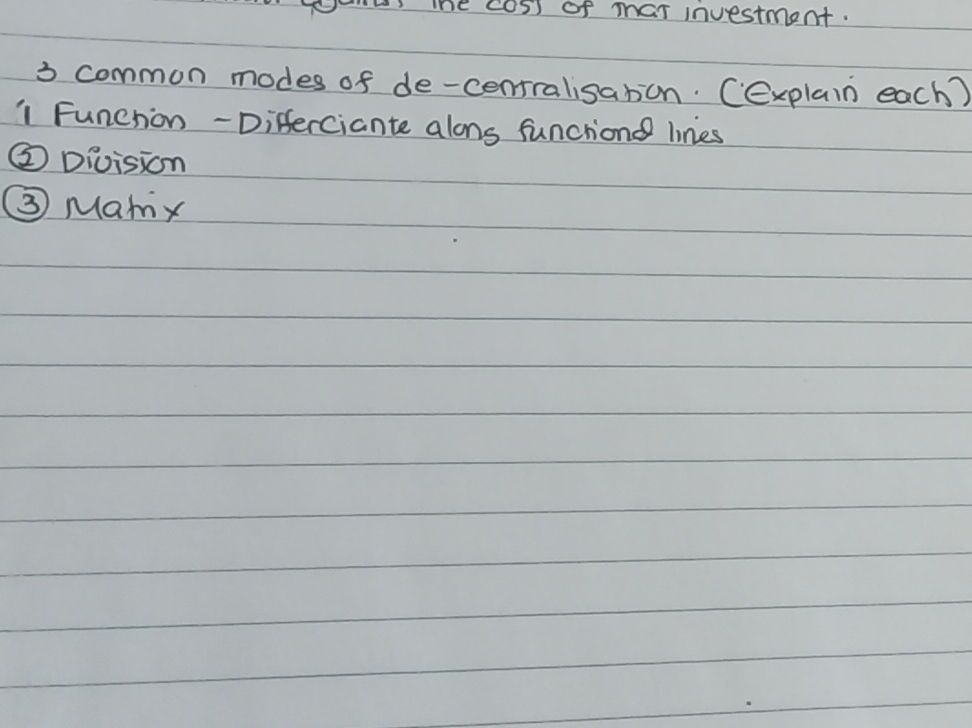 the cost of that investment.
3 common modes of de-centralisation. (Explain each)
1 Function - Differciante along functional lines
② Division
③ Matrix